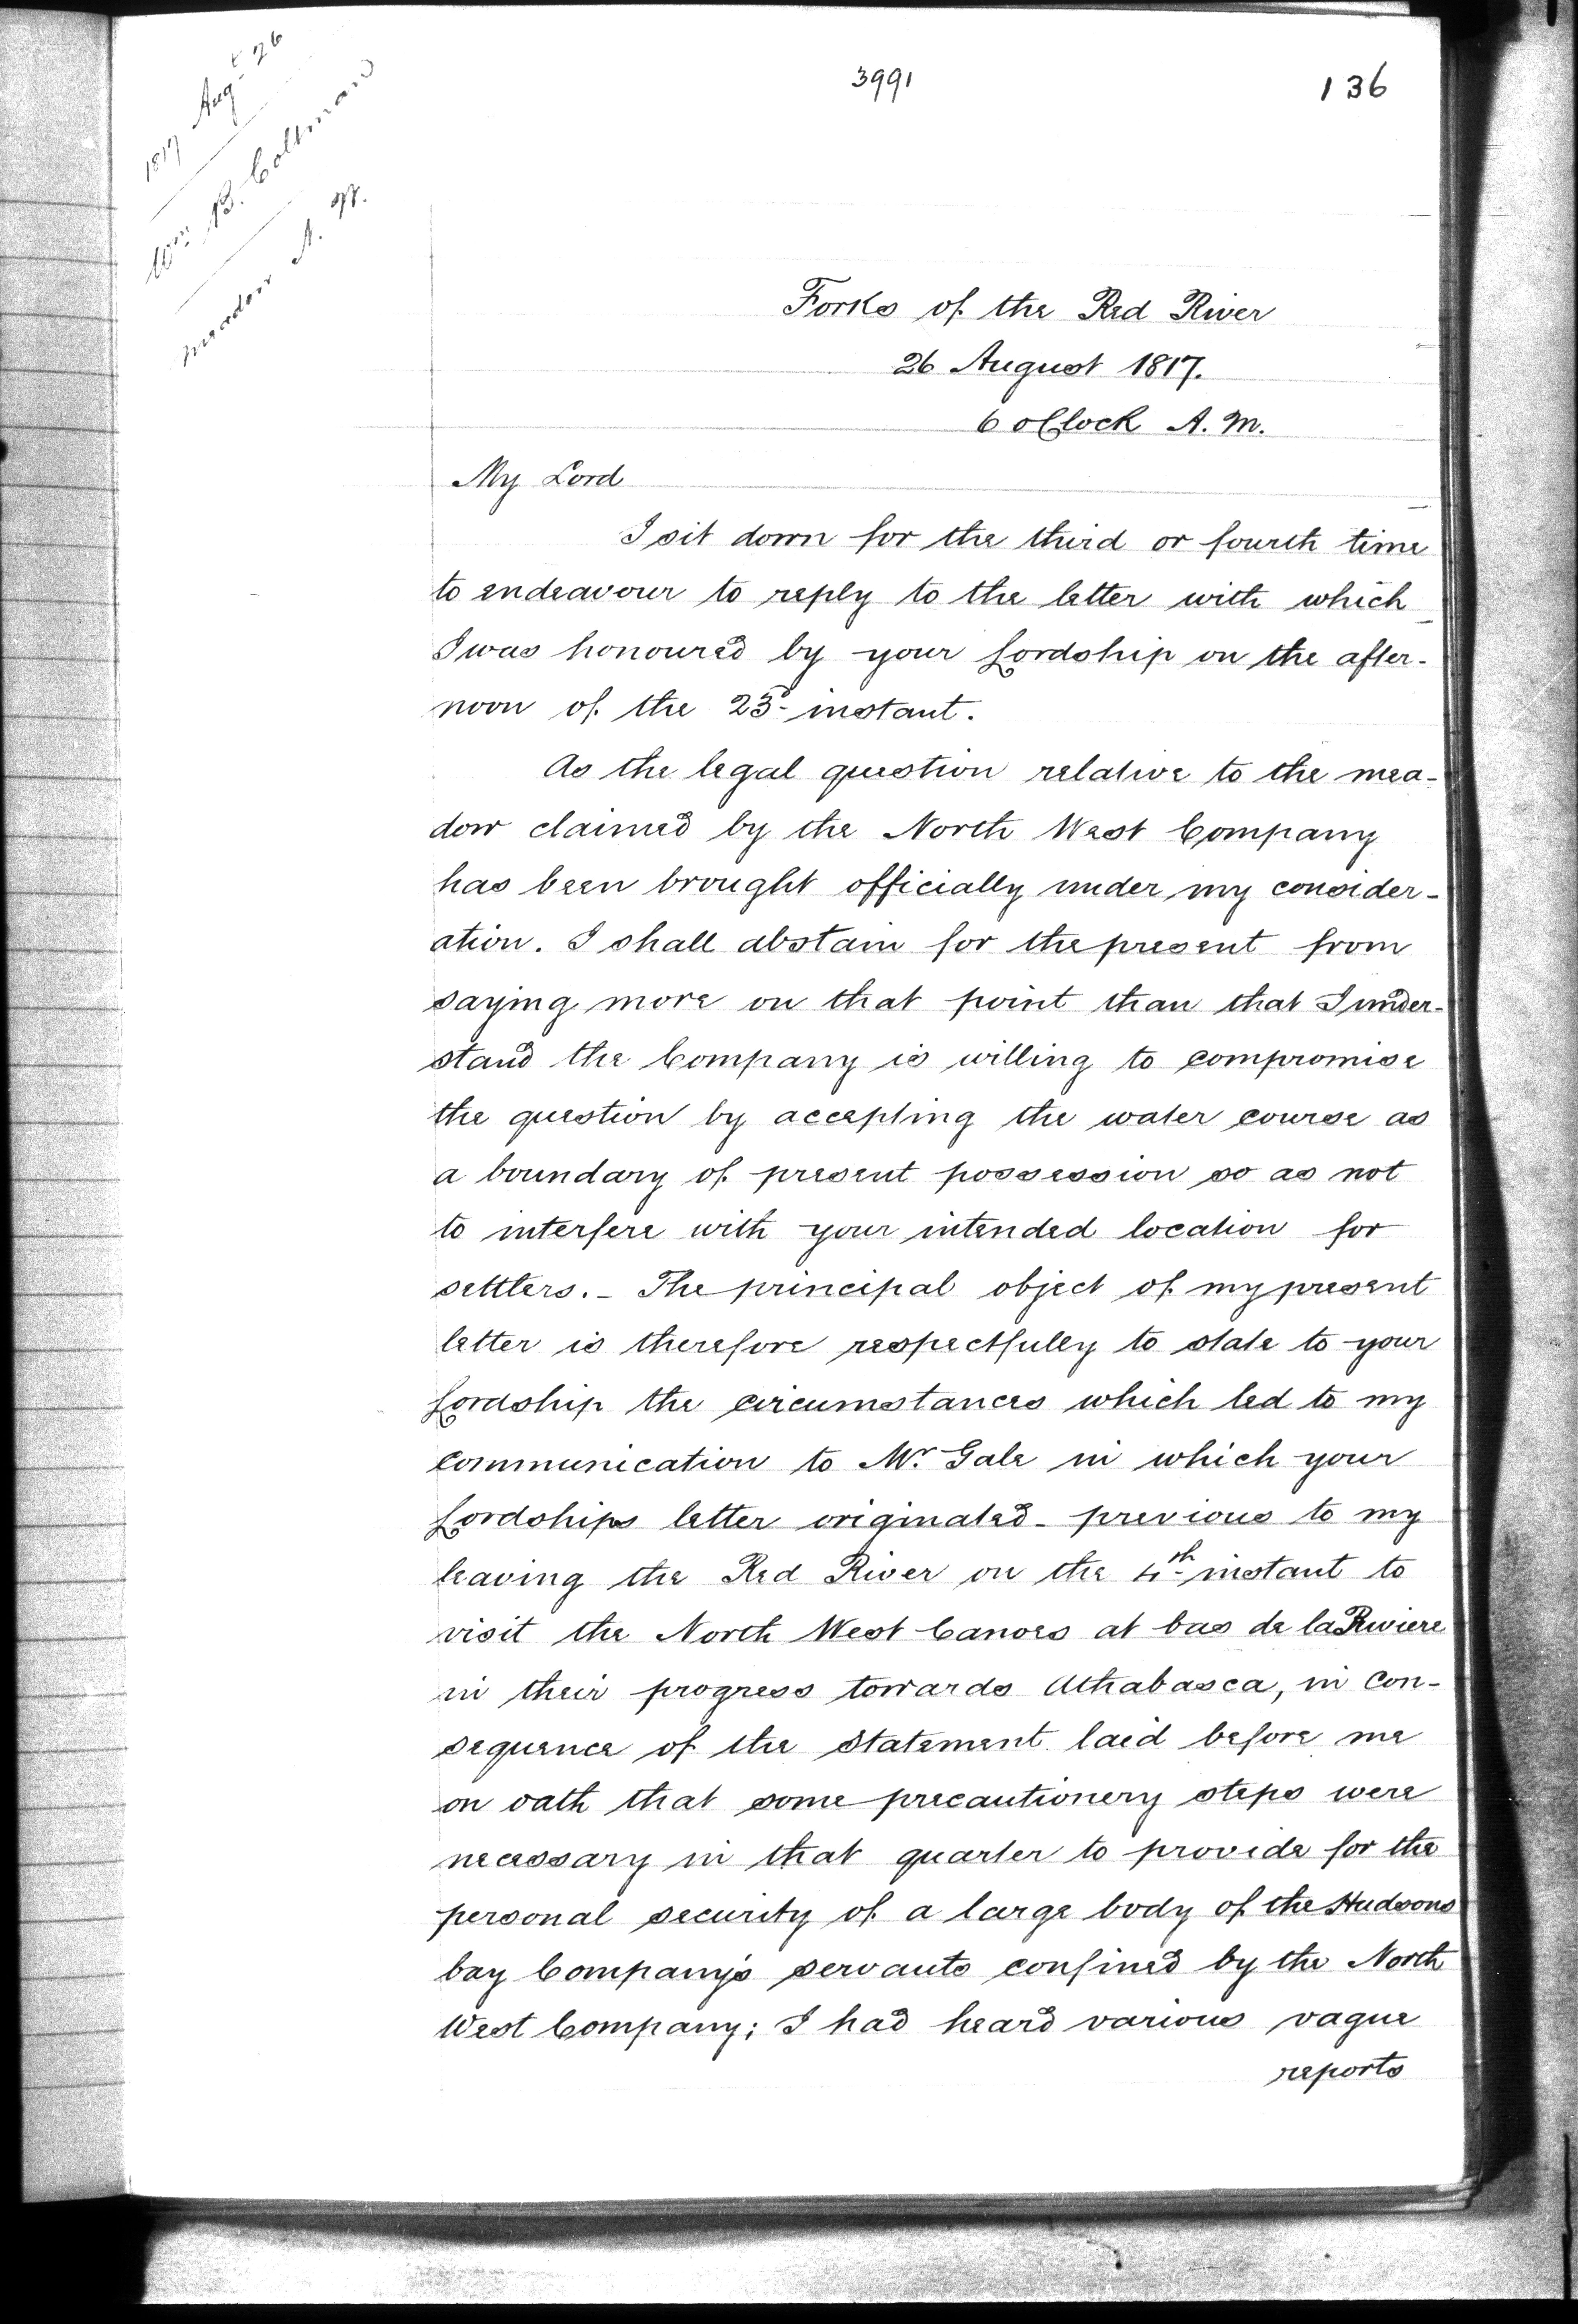 3991
136
1817 Augt 26
Wm B. Coltman
meadow
Forks of the Red River
26 August 1817.
6 oClock A. M.
My Lord
I sit down for the third or fourth time
to endeavour to reply to the letter with which
I was honoured by your Lordship on the after-
noon of the 23d instant.
As the legal question relative to the mea-
dow claimed by the North West Company
has been brought officially under my consider-
ation. I shall abstain for the present from
saying more on that point than that I under-
stand the Company is willing to compromise
the question by accepting the water course as
a boundary of present possession so as not
to interfere with your intended location for
settlers. - The principal object of my present
letter is therefore respectfully to state to your
Lordship the circumstances which led to my
communication to Mr. Gale in which your
Lordships letter originated - previous to my
leaving the Red River on the 4th instant to
visit the North West Canoes at bas de la Riviere
in their progress towards Athabasca, in con-
sequence of the statement laid before me
on oath that some precautionery steps were
necessary in that quarter to provide for the
personal security of a large body of the Hudsons
bay Company's servants confined by the North
West Company; I had heard various vague
reports